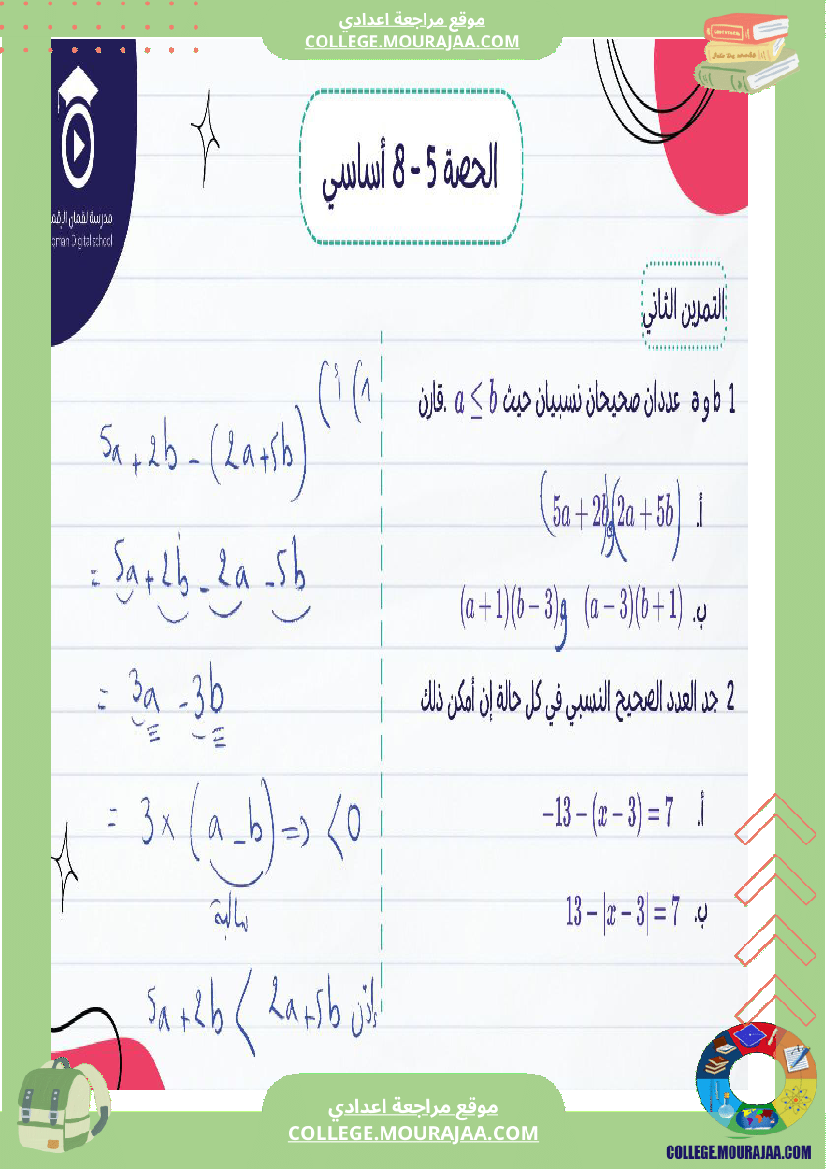 موقع مراجعة اعدادي
COLLEGE.MOURAJAA.COM
مدرسة لقمان الرقمية
oman Digital school
الحصة 5 - 8 أساسي
التمرين الثاني
1 a و b عددان صحيحان نسبيان حيث a ≤ b .قارن
أ. (5a + 2b) و (2a + 5b)
ب. (a + 1)(b − 3) و (a − 3)(b + 1)
2 جد العدد الصحيح النسبي في كل حالة إن أمكن ذلك
أ. −13 − (x − 3) = 7
ب. 13 − |x − 3| = 7
1) أ)
5a + 2b − (2a + 5b)
= 5a + 2b − 2a − 5b
= 3a − 3b
= 3 × (a − b) => < 0
سالبة
إذن 5a + 2b < 2a + 5b
موقع مراجعة اعدادي
COLLEGE.MOURAJAA.COM
COLLEGE.MOURAJAA.COM